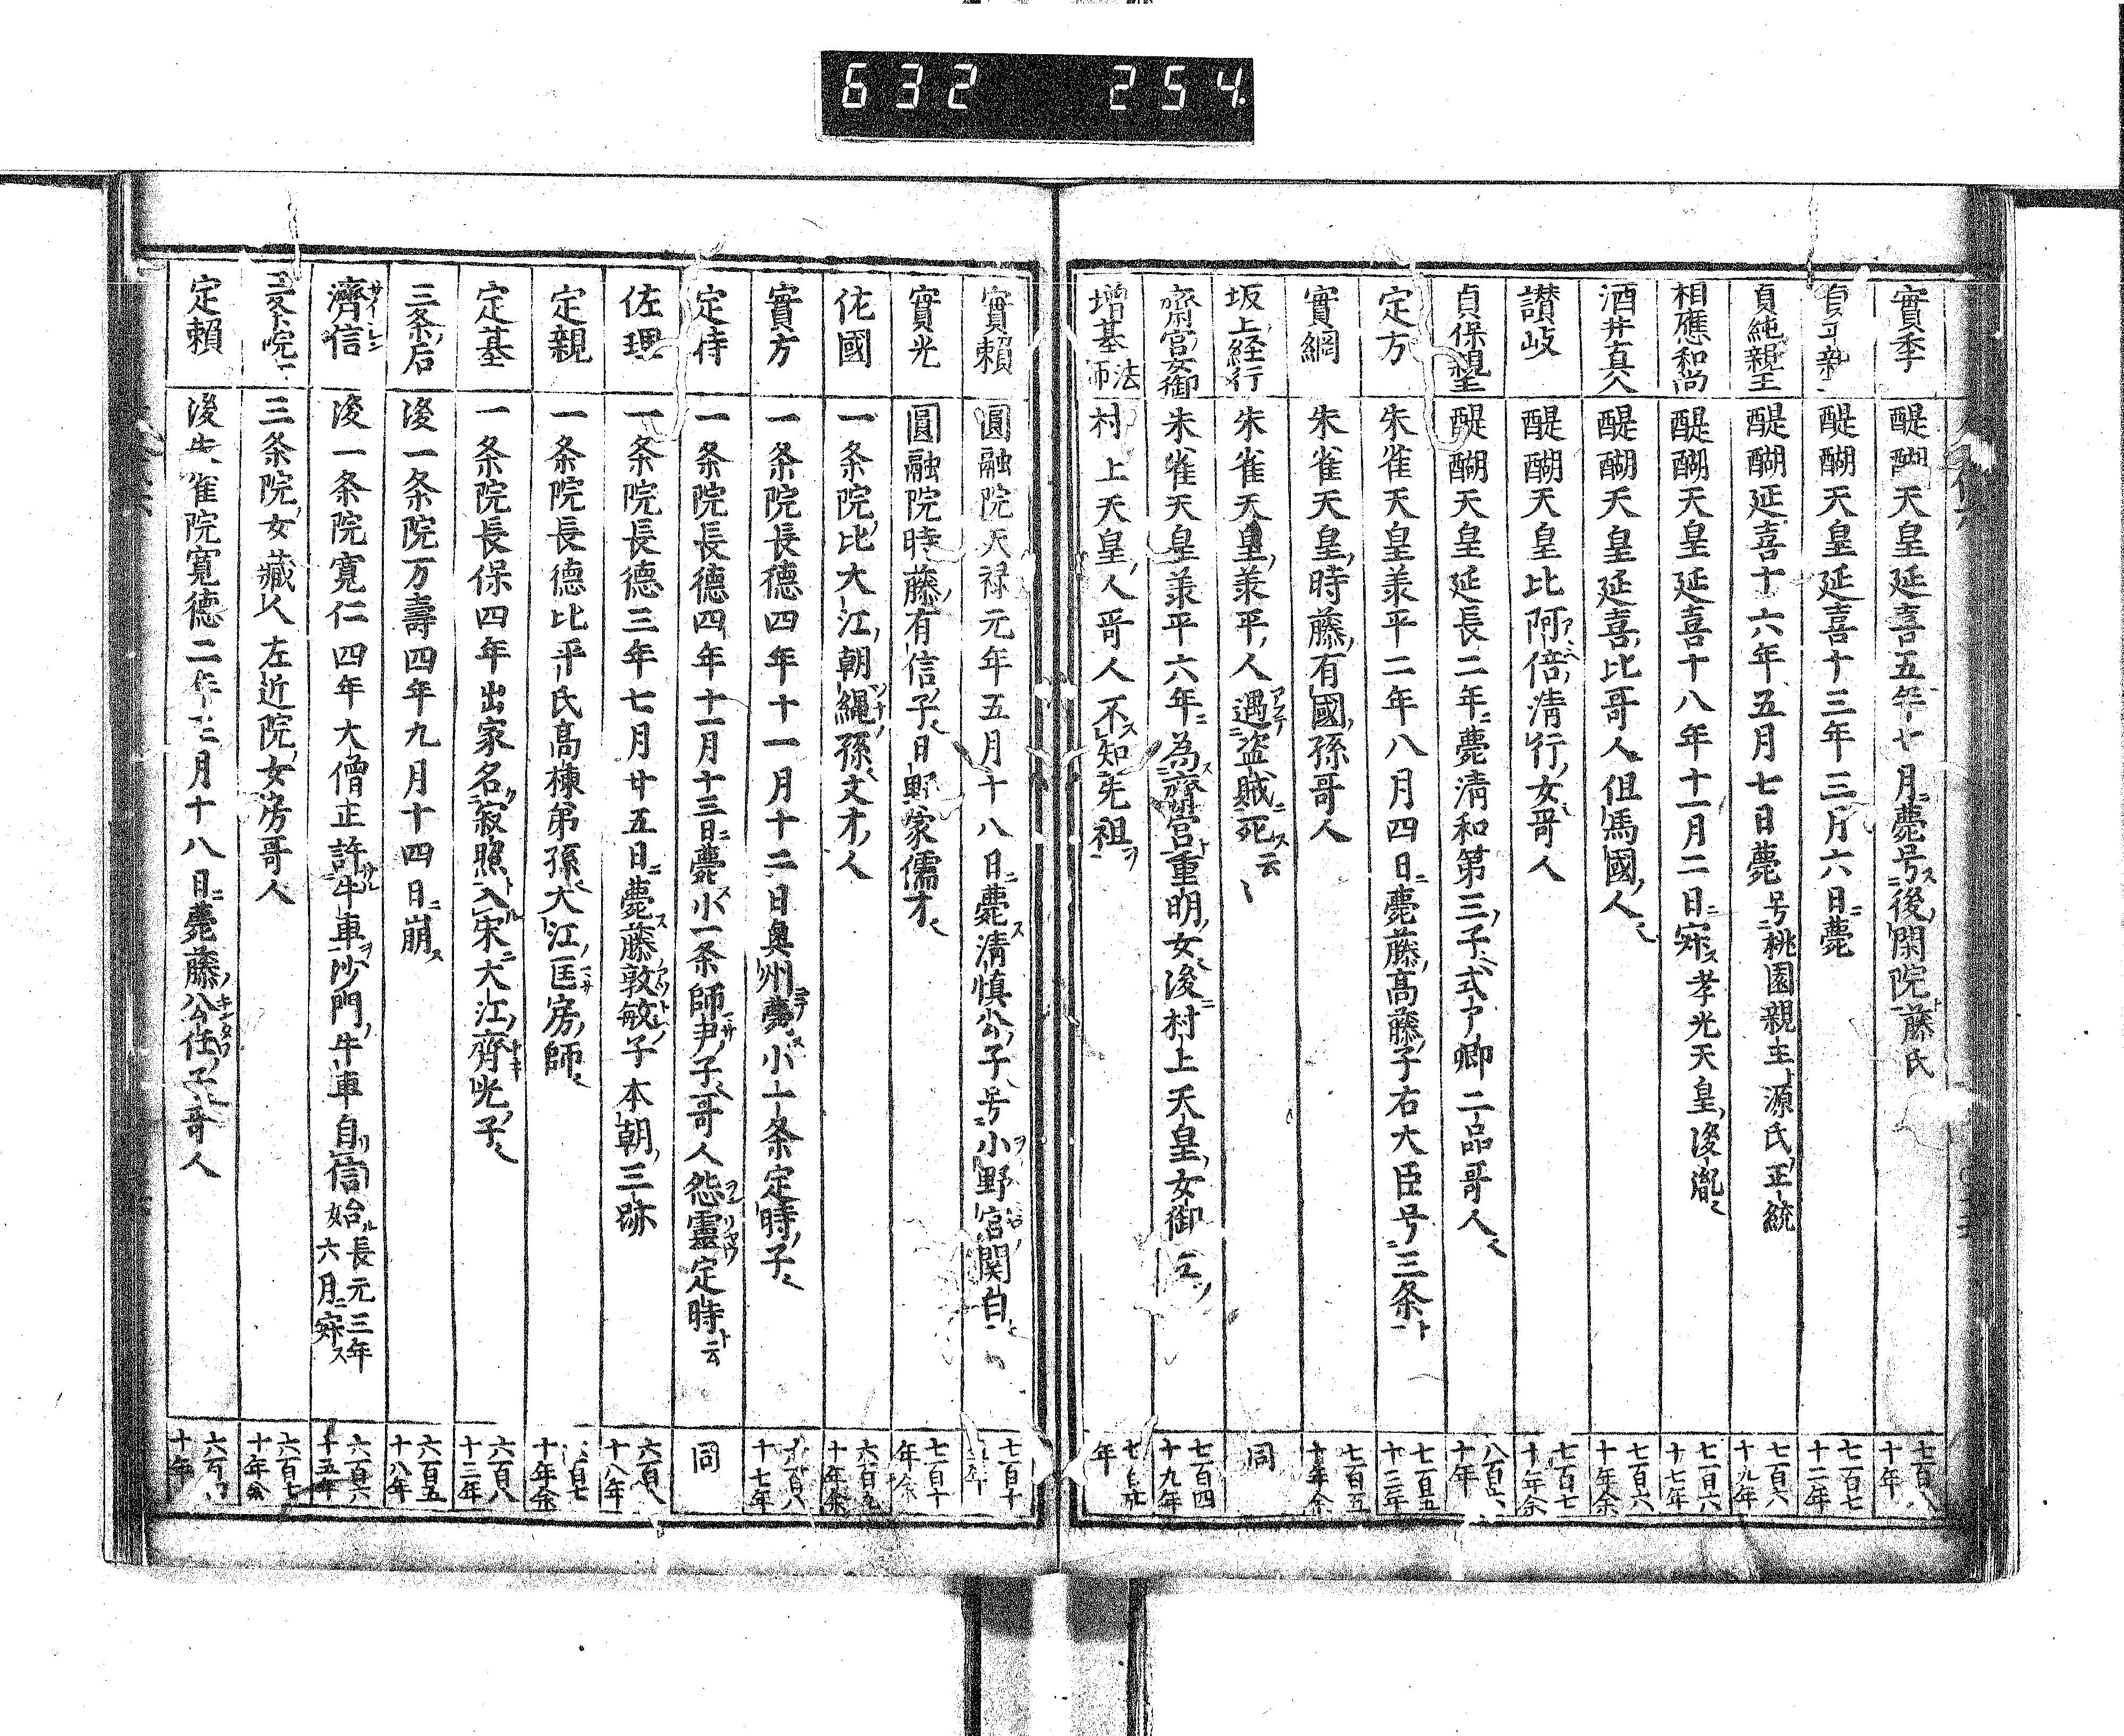 632 254
實季 醍醐天皇延喜五年七月薨号後閑院藤氏 七百八十年
醍醐天皇延喜十三年三月六日薨 七百七十二年
貞純親王 醍醐延喜十六年五月七日薨号桃園親王源氏正統 七百六十九年
相應和尚 醍醐天皇延喜十八年十一月二日寂ス孝光天皇後胤 七百六十七年
酒井真人 醍醐天皇延喜比哥人但馬國人 七百六十年余
讃岐 醍醐天皇比阿倍清行女哥人 七百七十年余
貞保親王 醍醐天皇延長二年薨清和第三子式ア卿二品哥人 十年
定方 朱雀天皇羕平二年八月四日薨藤高藤子右大臣号三条ト 七百五十三年
實綱 朱雀天皇時藤有國孫哥人 七百五十年余
坂上経行 朱雀天皇羕平人遇盗賊死ス云 同
齋宮女御 朱雀天皇羕平六年為齋宮重明女後村上天皇女御 七百四十九年
増基法师 村上天皇人哥人不知先祖ヲ 年
實賴 圓融院天禄元年五月十八日薨ス清慎公子号小野宮関白 七百十
實光 圓融院時藤有信子日野家儒才 七百十年余
佗國 一条院比大江朝縄孫文才人 六百九十年余
實方 一条院長德四年十一月十二日奥州薨ス小一条定時子 六百八十七年
定侍 一条院長德四年十一月十三日薨ス小一条師尹子哥人怨靈定時ト云 同
佐理 一条院長德三年七月廿五日薨ス藤敦敏子本朝三跡 六百八十八年
定親 一条院長德比平氏高棟苐孫大江匡房師 百七十年余
定基 一条院長保四年出家名寂照入宋大江齊光子 六百八十二年
三条后 後一条院万壽四年九月十四日崩ス 六百五十八年
濟信 後一条院寛仁四年大僧正許牛車ヲ沙門牛車自信始ル長元三年六月寂ス 六百六十五年
三条院 三条院女藏人左近院女房哥人 六百七十年余
定賴 後朱雀院寛德二年三月十八日薨藤公任子哥人 十年